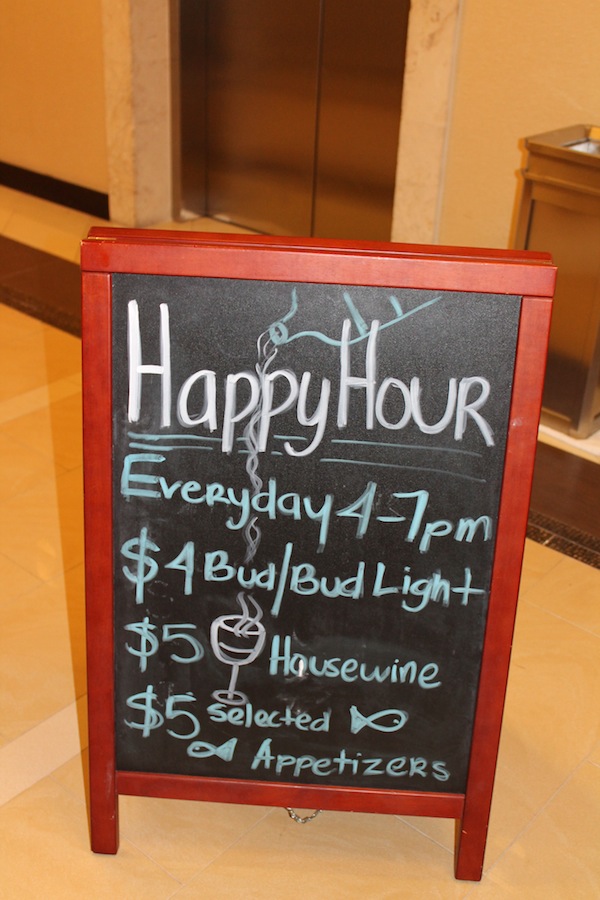 Happy Hour
Everyday 4-7pm
$4 Bud/Bud Light
$5 Housewine
$5 Selected
Appetizers